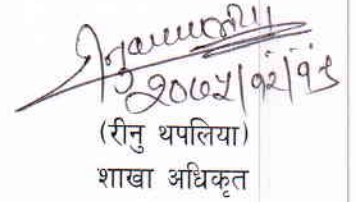 २०७५|१२|१९
(रीनु थपलिया)
शाखा अधिकृत